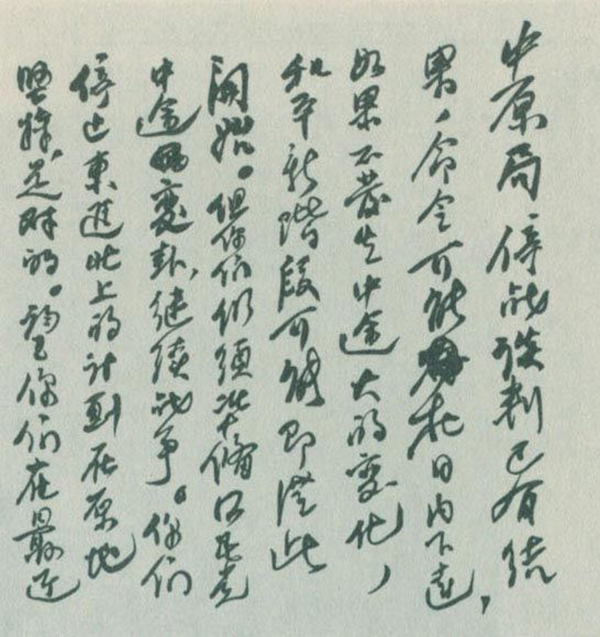 中原局停战谈判已有结
果,命令可能在日内下达,
如果不發生中途大的变化,
和平新階段可能即從此
開始。但你们仍须准備
中途變卦,继续战争。你们
停止東進北上的计划在原地
坚持,是对的。望你们在最近